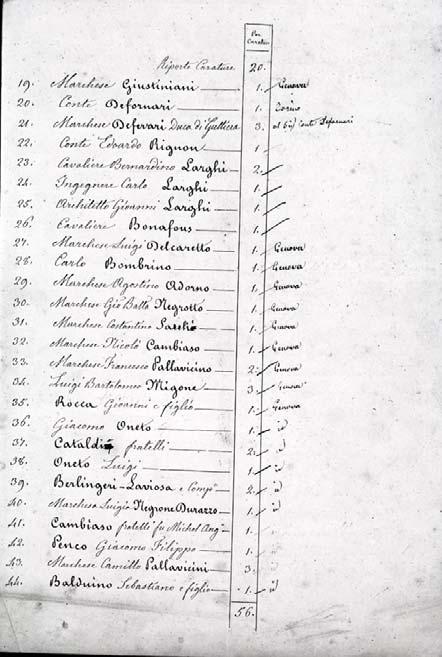 Per Caratura
Riporto Carature 20.
19. Marchese Giustiniani 1. Genova
20. Conte Defornari 1. Torino
21. Marchese Deferrari Duca di Galliera 3. al Sig. Conte Defornari
22. Conte Edoardo Rignon 1.
23. Cavaliere Bernardino Larghi 2.
24. Ingegnere Carlo Larghi 1.
25. Architetto Giovanni Larghi 1.
26. Cavaliere Bonafous 1.
27. Marchese Luigi Delcaretto 1. Genova
28. Carlo Bombrino 1. Genova
29. Marchese Agostino Adorno 1. Genova
30. Marchese Gio Batta Negrotto 1. Genova
31. Marchese Costantino 1. Genova
32. Marchese Nicolò Cambiaso 1. Genova
33. Marchese Francesco Pallavicino 2. Genova
34. Luigi Bartolomeo Migone 3. Genova
35. Rocca Giovanni e figlio 1. Genova
36. Giacomo Oneto 1. id
37. Cataldi fratelli 2. id
38. Oneto Luigi 1. id
39. Berlingeri-Laviosa e Comp. 2. id
40. Marchese Luigi Negrone Durazzo 1. id
41. Cambiaso fratelli fu Michel Ang. 1.
42. Penco Giacomo Filippo 1.
43. Marchese Camillo Pallavicini 3. id
44. Balduino Sebastiano e figlio 1. id
56.